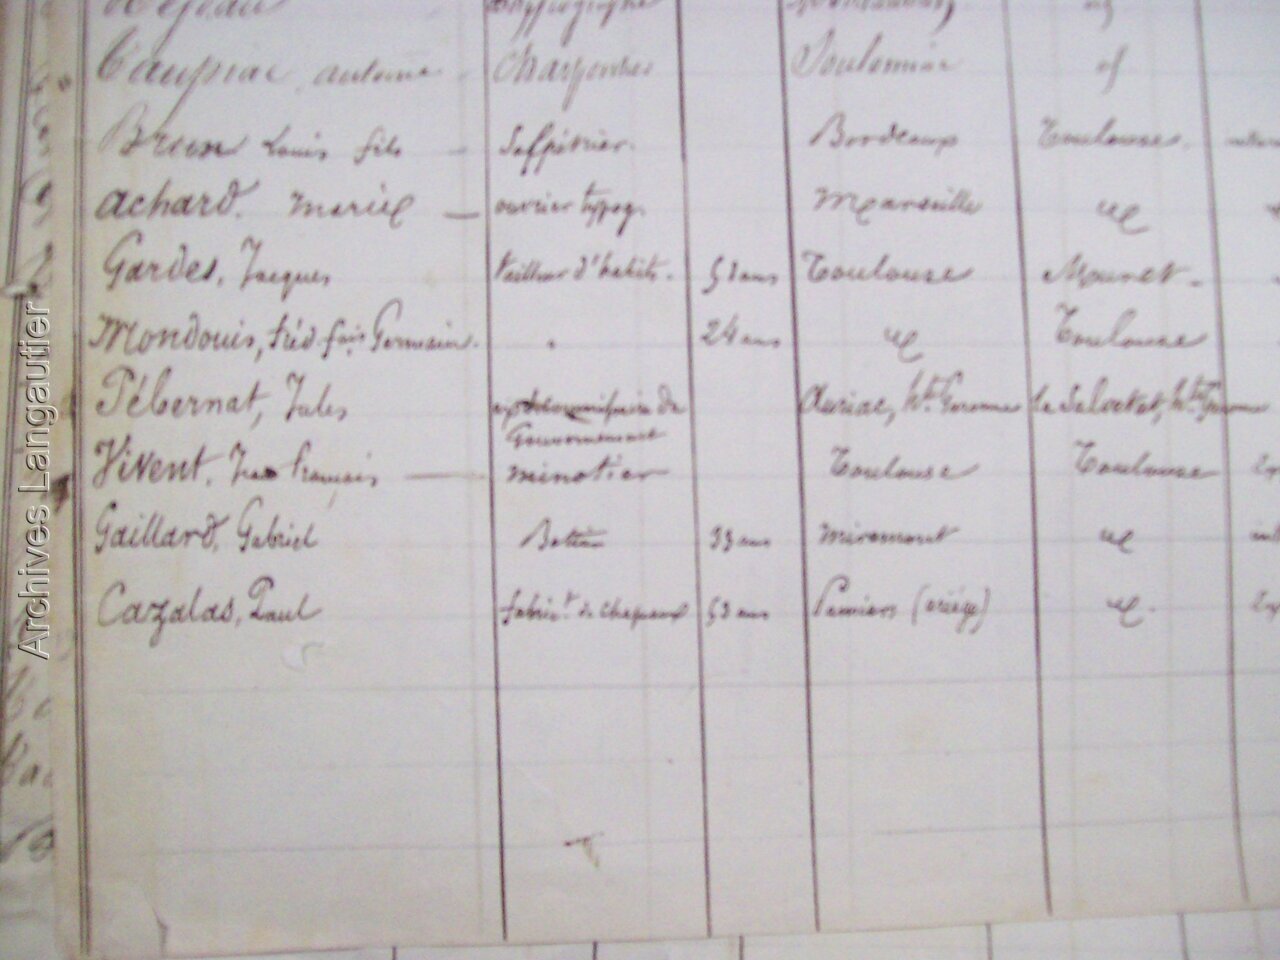 Caussiac, antoine Charpentier id
Brun Louis fils Salpétrier. Bordeaux Toulouse.
Achard. Mariel ouvrier typog. Marseille id
Gardes, Jacques tailleur d'habits. 51 ans Toulouse Muret.
Mondouis, Fréd. fois Germain. " 24 ans id Toulouse
Pébernat, Jules de Auriac, hte Garonne la Salvetat, hte Garonne
Gouvernement
Vivent. Jean François minotier Toulouse Toulouse
Gaillard, Gabriel 33 ans Miramont id
Cazalas, Paul fabrict de chapeaux 53 ans Pamiers (ariége) id.
Archives Langautier